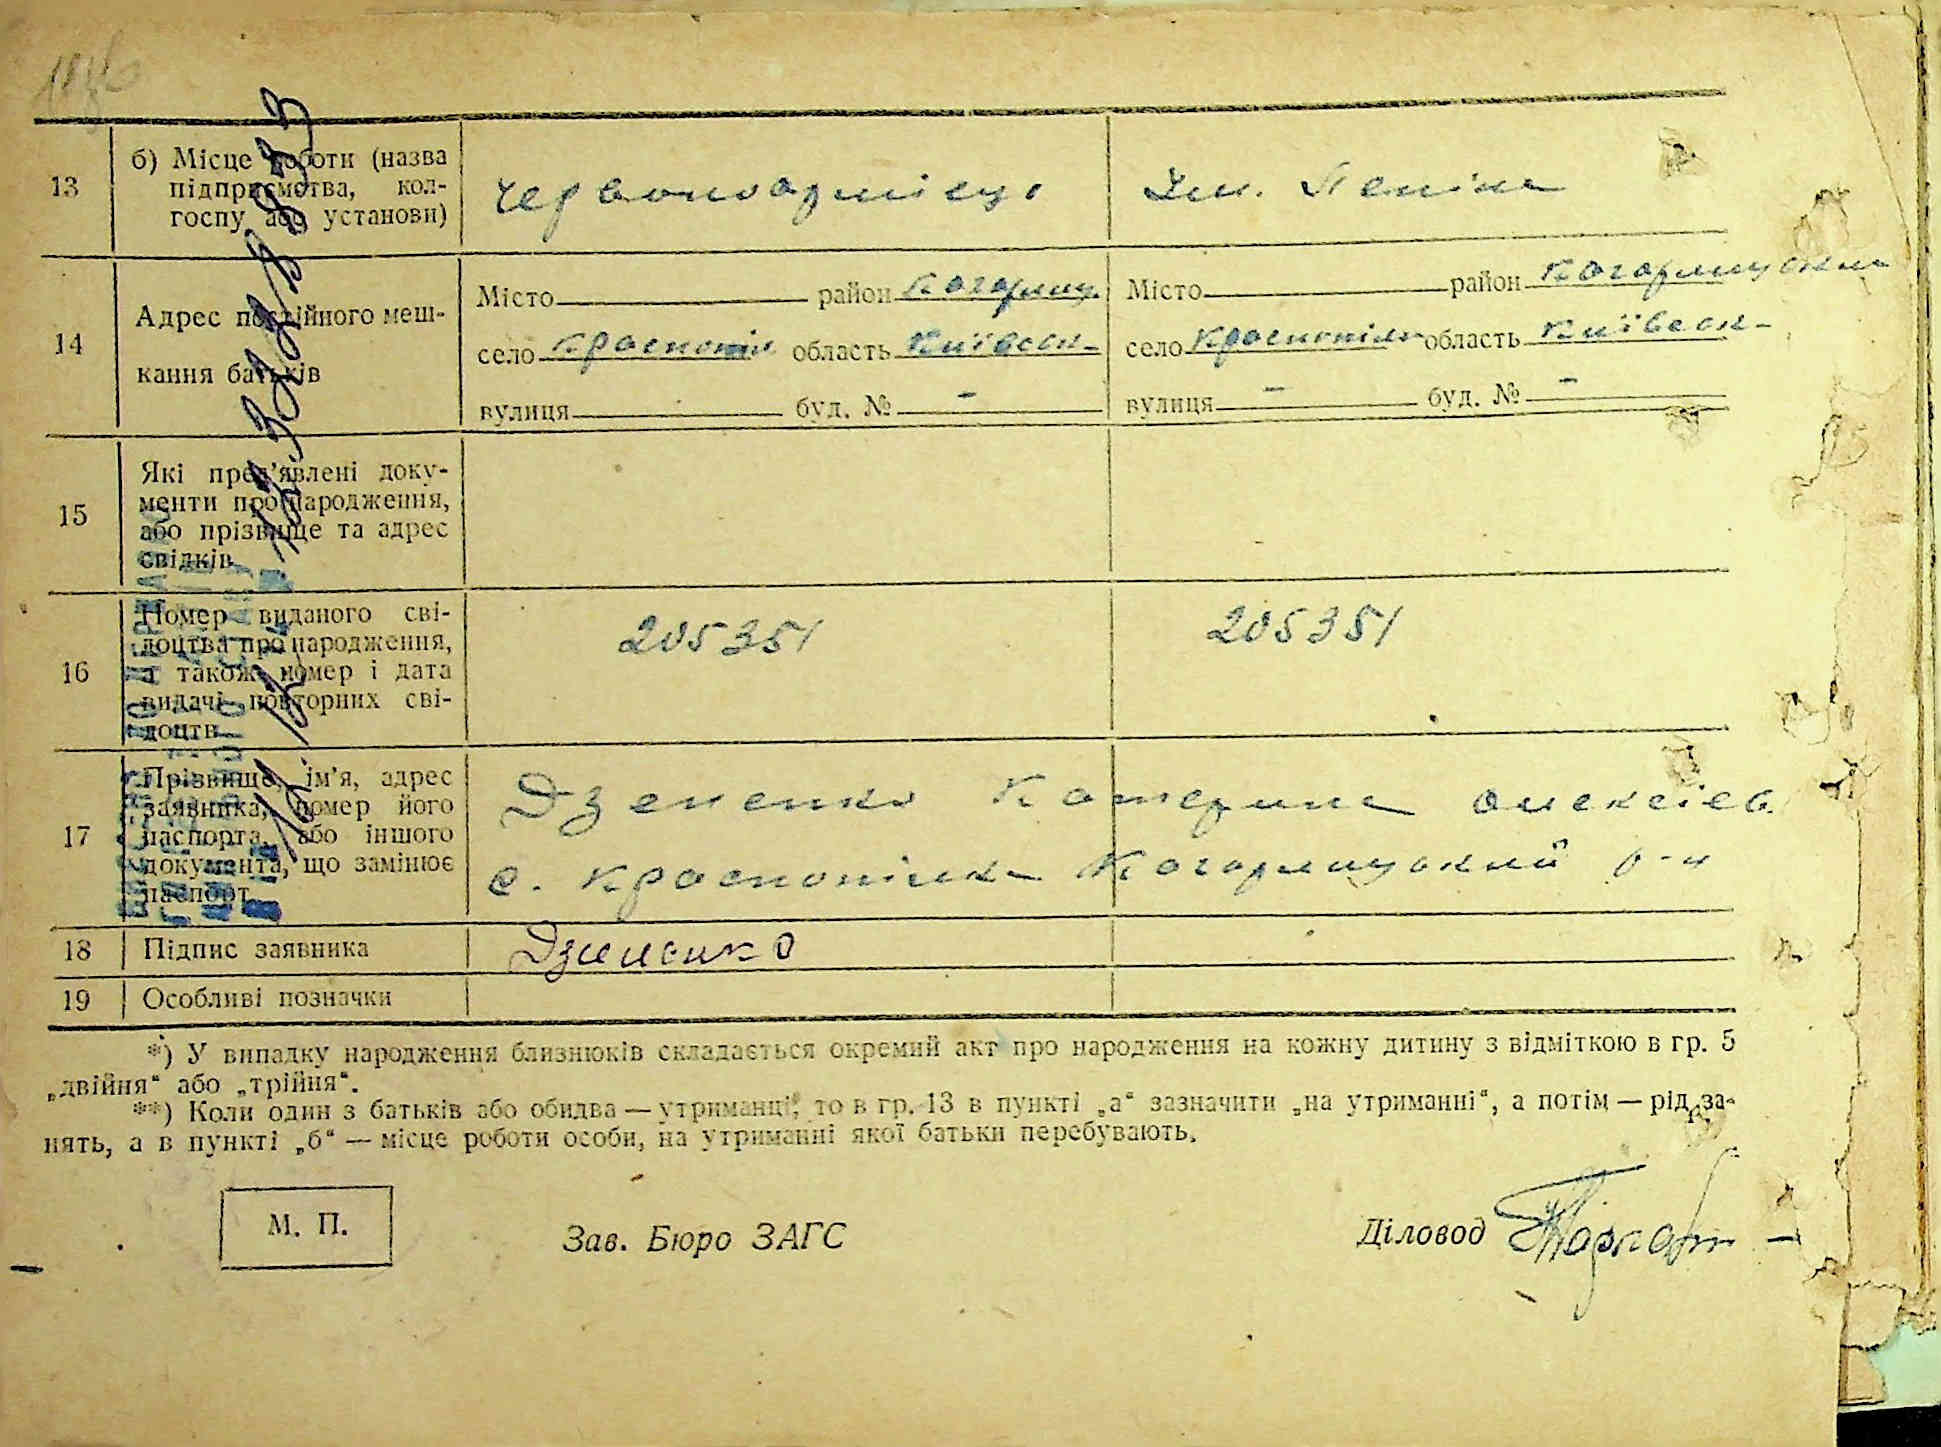 13
б) Місце роботи (назва
підприємства, кол-
госпу або установи)
Червоноармієць
Ім. Леніна
14
Адрес постійного меш-
кання батьків
Місто район Кагарлиц.
село Краснопілк область Київськ-
вулиця буд. № -
Місто район Кагарлицький
село Краснопілк область Київськ-
вулиця - буд. № -
15
Які пред'явлені доку-
менти про народження,
або прізвище та адрес
свідків
16
Номер виданого сві-
доцтва про народження,
а також номер і дата
видачі повторних сві-
доцтв
205351
205351
17
Прізвище, ім'я, адрес
заявника, номер його
паспорта, або іншого
документа, що замінює
паспорт
Дзененко Катерина Олексієв.
с. Краснопілка Кагарлицький р-н
18
Підпис заявника
Дзененко
19
Особливі позначки
*) У випадку народження близнюків складається окремий акт про народження на кожну дитину з відміткою в гр. 5
„двійня“ або „трійня“.
**) Коли один з батьків або обидва — утриманці, то в гр. 13 в пункті „а“ зазначити „на утриманні“, а потім — рід за-
нять, а в пункті „б“ — місце роботи особи, на утриманні якої батьки перебувають.
М. П.
Зав. Бюро ЗАГС
Діловод